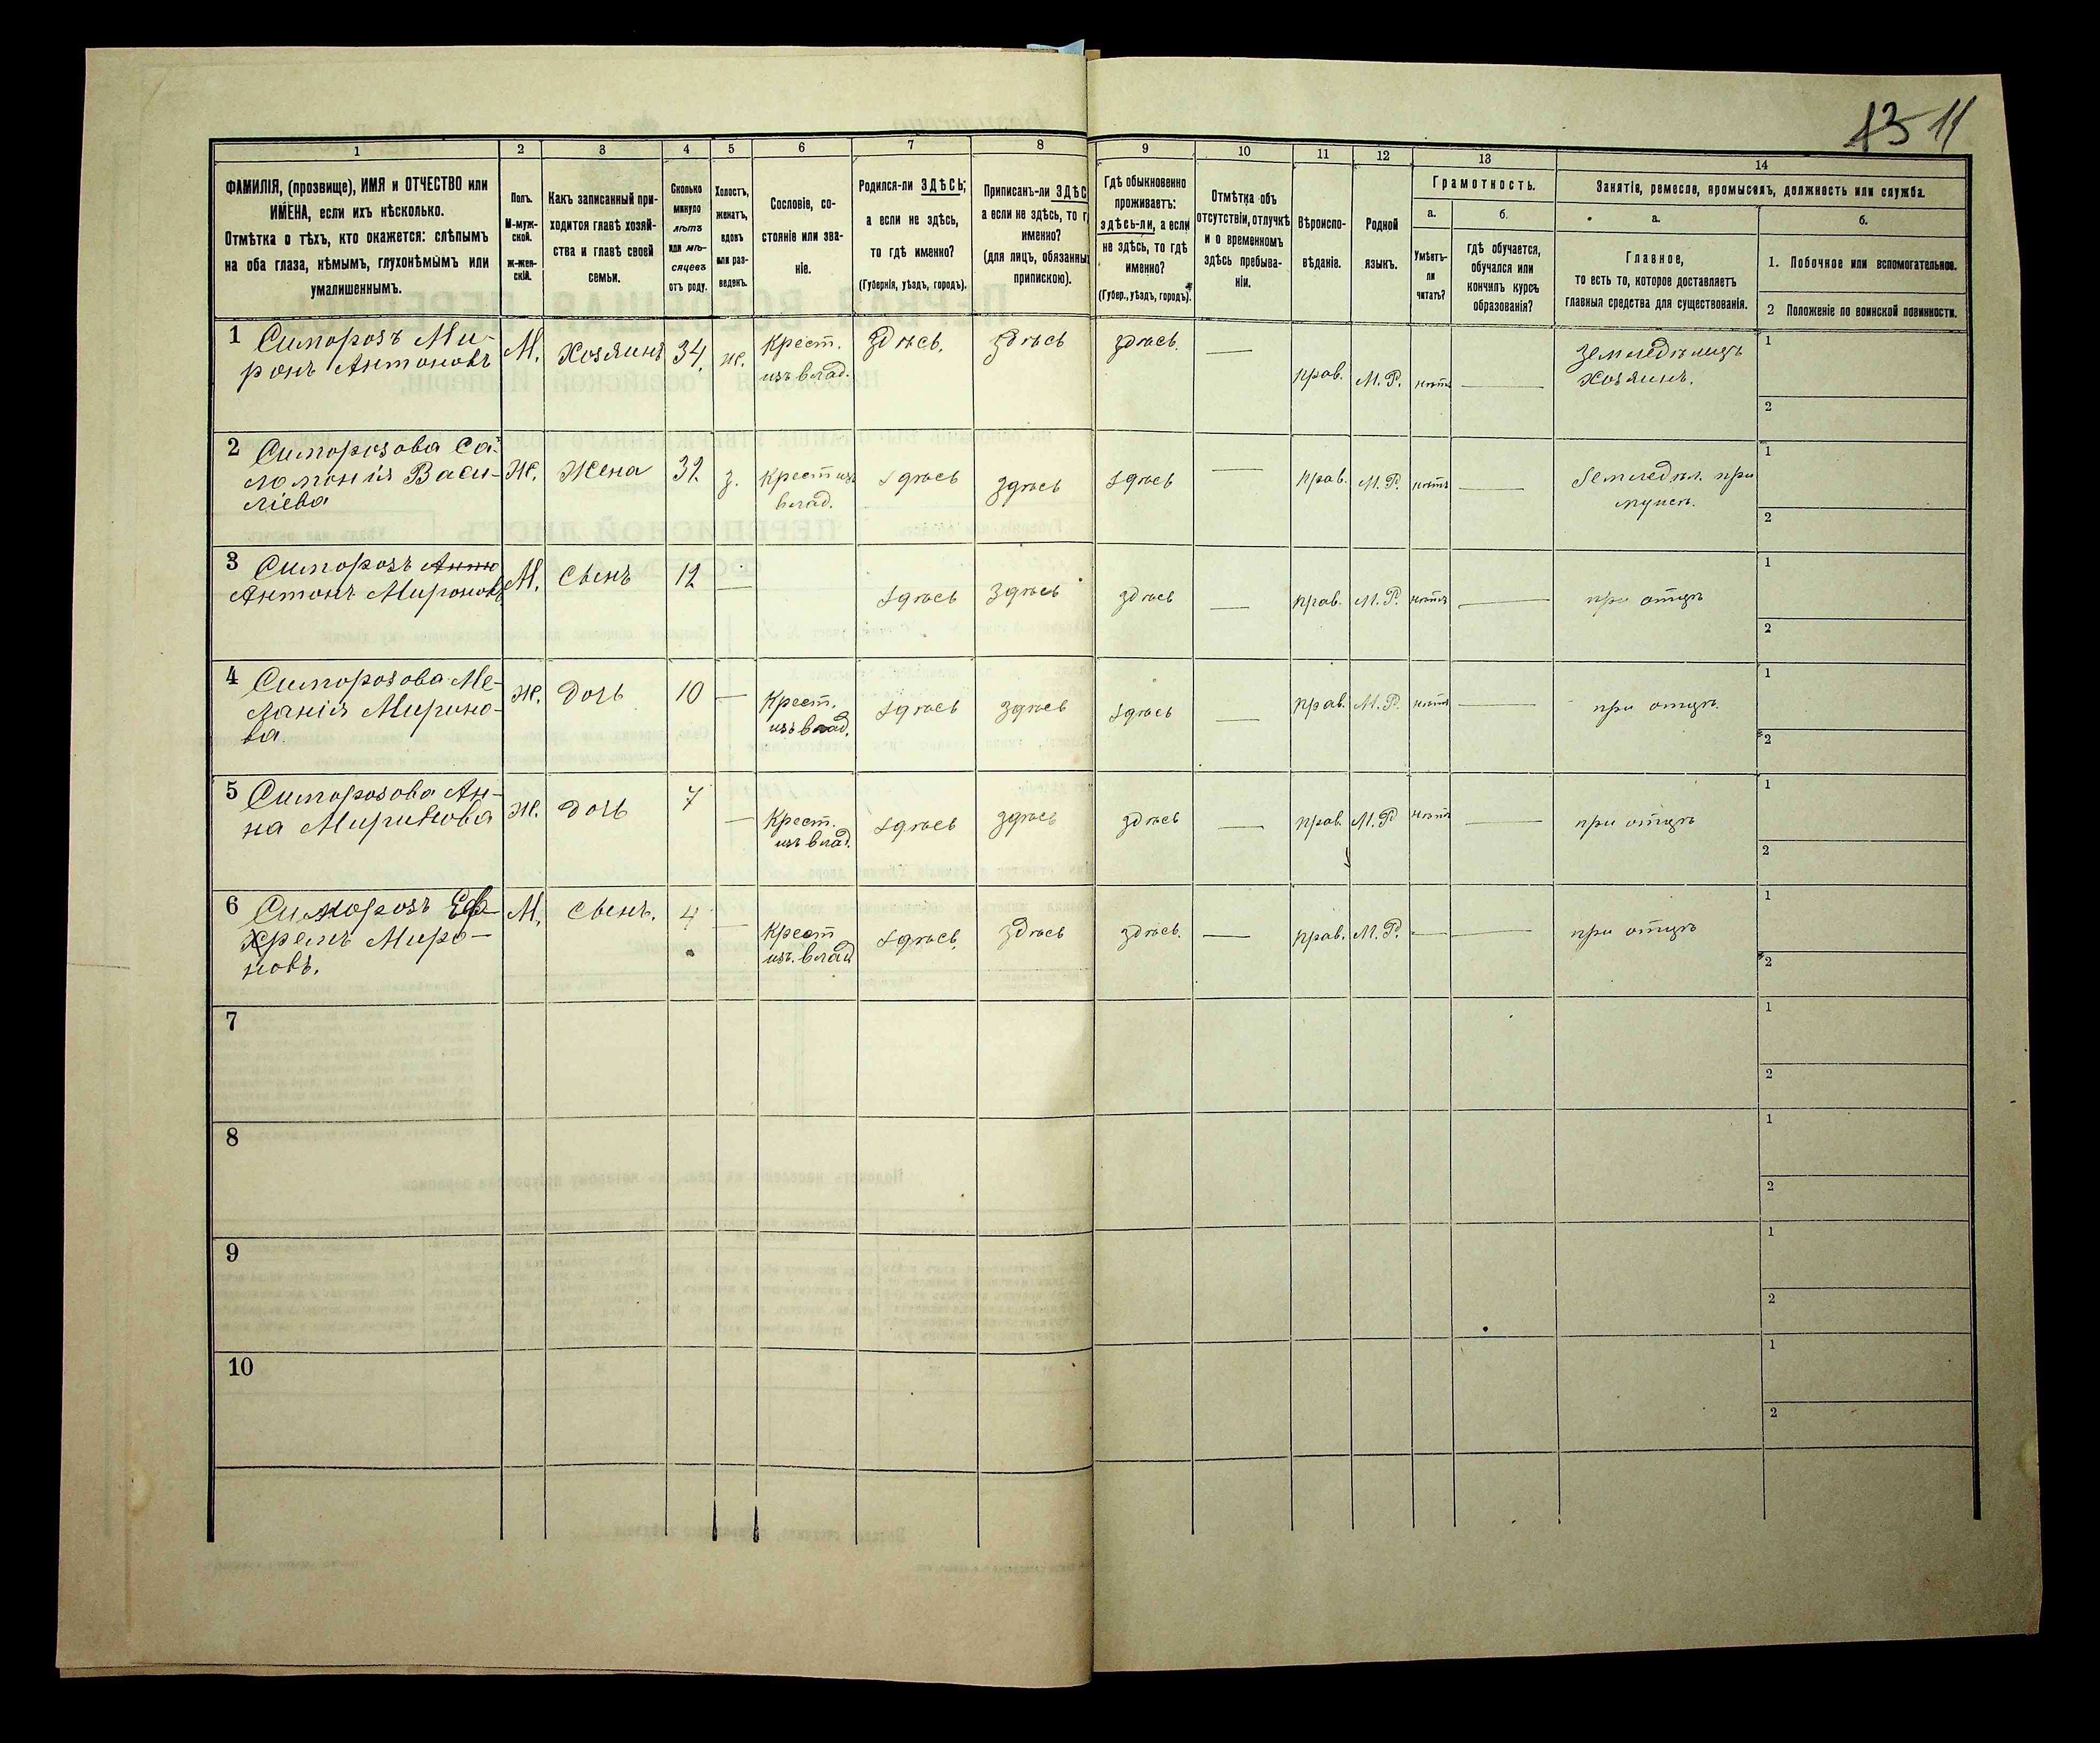 13 11
1 2 3 4 5 6 7 8 9 10 11 12 13 14
ФАМИЛІЯ, (прозвище), ИМЯ и ОТЧЕСТВО или
ИМЕНА, если ихъ нѣсколько.
Отмѣтка о тѣхъ, кто окажется: слѣпымъ
на оба глаза, нѣмымъ, глухонѣмымъ или
умалишеннымъ.
Полъ.
М-муж-
ской.
Ж-жен-
скій.
Какъ записанный при-
ходится главѣ хозяй-
ства и главѣ своей
семьи.
Сколько
минуло
лѣтъ
или мѣ-
сяцевъ
отъ роду.
Холостъ,
женатъ,
вдовъ
или раз-
веденъ.
Сословіе, со-
стояніе или зва-
ніе.
Родился-ли ЗДѢСЬ;
а если не здѣсь,
то гдѣ именно?
(Губернія, уѣздъ, городъ).
Приписанъ-ли ЗДѢС
а если не здѣсь, то г
именно?
(для лицъ, обязанных
припискою).
Гдѣ обыкновенно
проживаетъ:
здѣсь-ли, а если
не здѣсь, то гдѣ
именно?
(Губер., уѣздъ, городъ).
Отмѣтка объ
отсутствіи, отлучкѣ
и о временномъ
здѣсь пребыва-
ніи.
Вѣроиспо-
вѣданіе.
Родной
языкъ.
Грамотность.
а.
б.
Умѣетъ-
ли
читать?
гдѣ обучается,
обучался или
кончилъ курсъ
образованія?
Занятіе, ремесло, промыселъ, должность или служба.
а.
б.
Главное,
то есть то, которое доставляетъ
главныя средства для существованія.
1. Побочное или вспомогательное.
2 Положеніе по воинской повинности.
1 Симорозъ Ми-
ронъ Антоновъ
М. Хозяинъ 34. ж. Крест.
изъ влад.
Здѣсь. здѣсь здѣсь. — прав. М. Р. нѣтъ —
земледѣлецъ
Хозяинъ.
1
2
2 Симорозова Са-
ломонія Васи-
ліева
Ж. Жена 32 з. Крест изъ
влад.
здѣсь здѣсь здѣсь — прав. М. Р. нѣтъ —
земледѣл. при
мужѣ.
1
2
3 Симорозъ
Антонъ Мироновъ
М. Сынъ 12 — здѣсь здѣсь здѣсь — прав. М. Р. нѣтъ — при отцѣ
1
2
4 Симорозова Ме-
ланія Мироно-
ва.
Ж. Дочь 10 — Крест.
изъ влад.
здѣсь здѣсь здѣсь — прав. М. Р. нѣтъ — при отцѣ.
1
2
5 Симорозова Ан-
на Миронова
Ж. Дочь 7 — Крест.
изъ влад.
здѣсь здѣсь здѣсь — прав. М. Р. нѣтъ — при отцѣ
1
2
6 Симорозъ Еф-
ремъ Миро-
новъ.
М. Сынъ. 4 — Крест
изъ. влад
здѣсь. здѣсь здѣсь. — прав. М. Р. — — при отцѣ
1
2
7
1
2
8
1
2
9
1
2
10
1
2